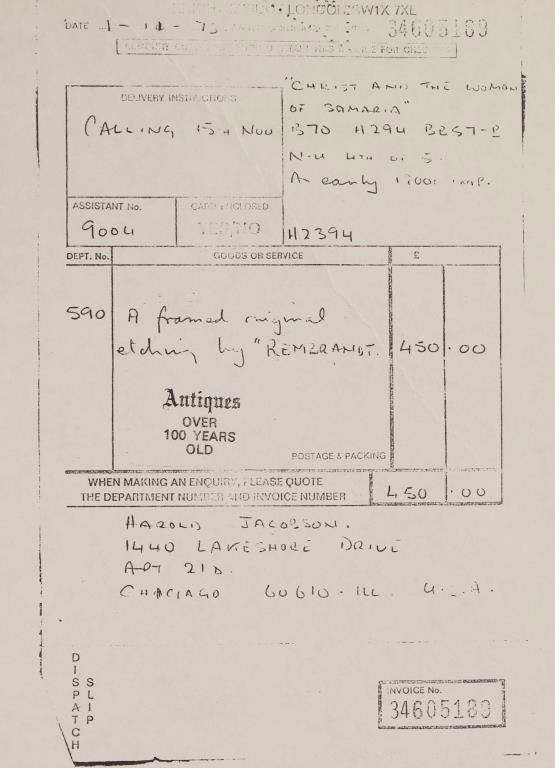 LONDON SW1X 7XL
DATE 34605189
DELIVERY INSTRUCTIONS
CALLING 15TH NOV
"CHRIST AND THE WOMAN
OF SAMARIA"
B70 H294
4TH OF 5.
A early
ASSISTANT No.
9004
CARD ENCLOSED
YES/NO
H2394
DEPT. No. GOODS OR SERVICE £
590 A framed original
etching by "REMBRANDT. 450 .00
Antiques
OVER
100 YEARS
OLD
POSTAGE & PACKING
WHEN MAKING AN ENQUIRY, PLEASE QUOTE
THE DEPARTMENT NUMBER AND INVOICE NUMBER
450 .00
HAROLD JACOBSON.
1440 LAKESHORE DRIVE
APT 21D.
CHACIAGO 60610. ILL. U.S.A.
DISPATCH
SLIP
INVOICE No.
34605189